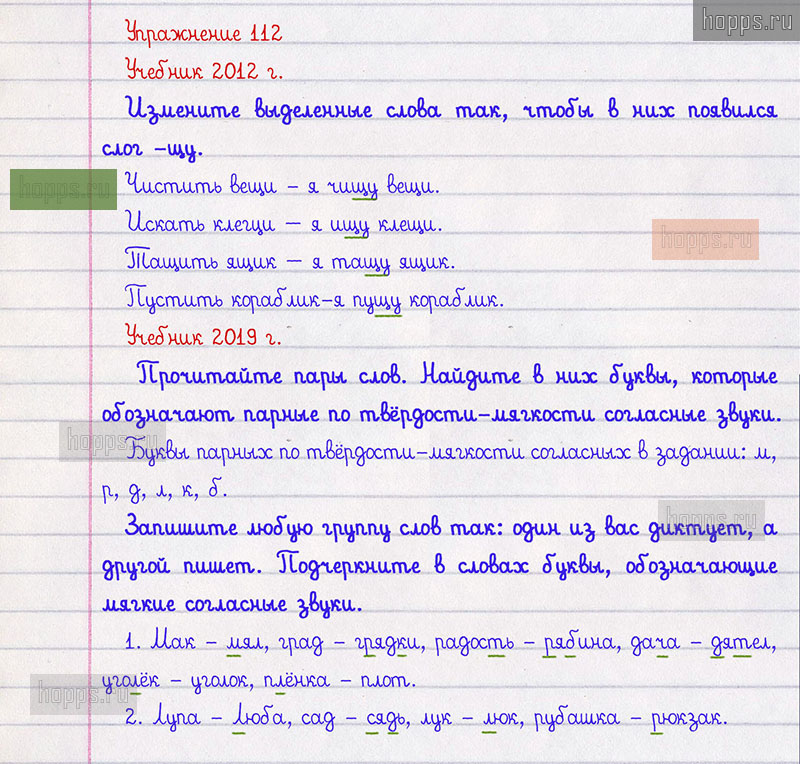 hopps.ru
Упражнение 112
Учебник 2012 г.
Измените выделенные слова так, чтобы в них появился
слог –щу.
hopps.ru
Чистить вещи – я чищу вещи.
Искать клещи – я ищу клещи.
hopps.ru
Тащить ящик – я тащу ящик.
Пустить кораблик–я пущу кораблик.
Учебник 2019 г.
Прочитайте пары слов. Найдите в них буквы, которые
обозначают парные по твёрдости–мягкости согласные звуки.
hopps.ru
Буквы парных по твёрдости–мягкости согласных в задании: м,
р, д, л, к, б.
hopps.ru
Запишите любую группу слов так: один из вас диктует, а
другой пишет. Подчеркните в словах буквы, обозначающие
мягкие согласные звуки.
1. Мак – мял, град – грядки, радость – рябина, дача – дятел,
уголёк – уголок, плёнка – плот.
hopps.ru
2. Лупа – Люба, сад – сядь, лук – люк, рубашка – рюкзак.